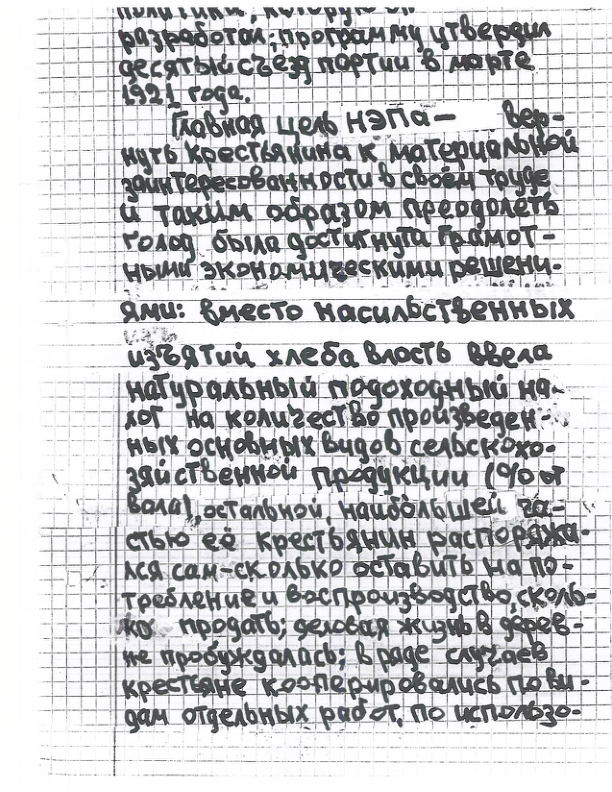 политики, которую он
разработал; программу утвердил
десятый съезд партии в марте
1921 года.
Главная цель НЭПа — вер-
нуть крестьянина к материальной
заинтересованности в своём труде
и таким образом преодолеть
голод была достигнута грамот-
ными экономическими решени-
ями: вместо насильственных
изъятий хлеба власть ввела
натуральный подоходный на-
лог на количество произведен-
ных основных видов сельскохо-
зяйственной продукции (% от
вала), остальной, наибольшей ча-
стью её крестьянин распоряжа-
лся сам - сколько оставить на по-
требление и воспроизводство, сколь-
ко продать; деловая жизнь в дерев-
не пробуждалась; в ряде случаев
крестьяне кооперировались по ви-
дам отдельных работ, по использо-